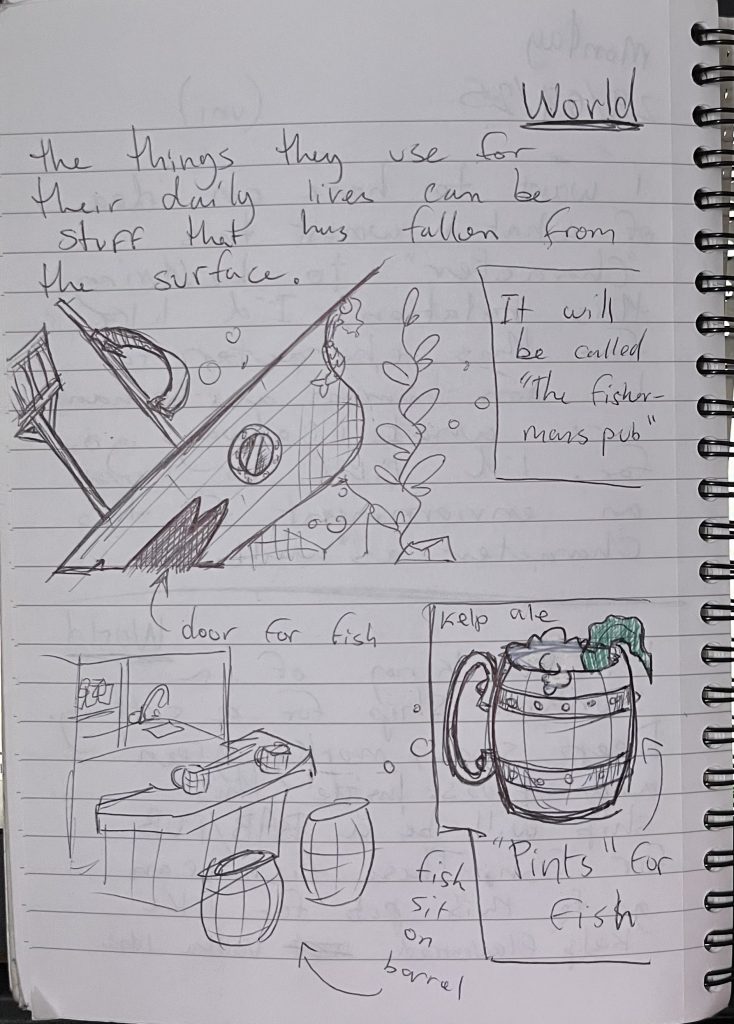 World
the things they use for
their daily lives can be
stuff that has fallen from
the surface.
It will
be called
"the fisher-
mans pub"
door for fish
kelp ale
"Pints" for
fish
fish
sit
on
barrel